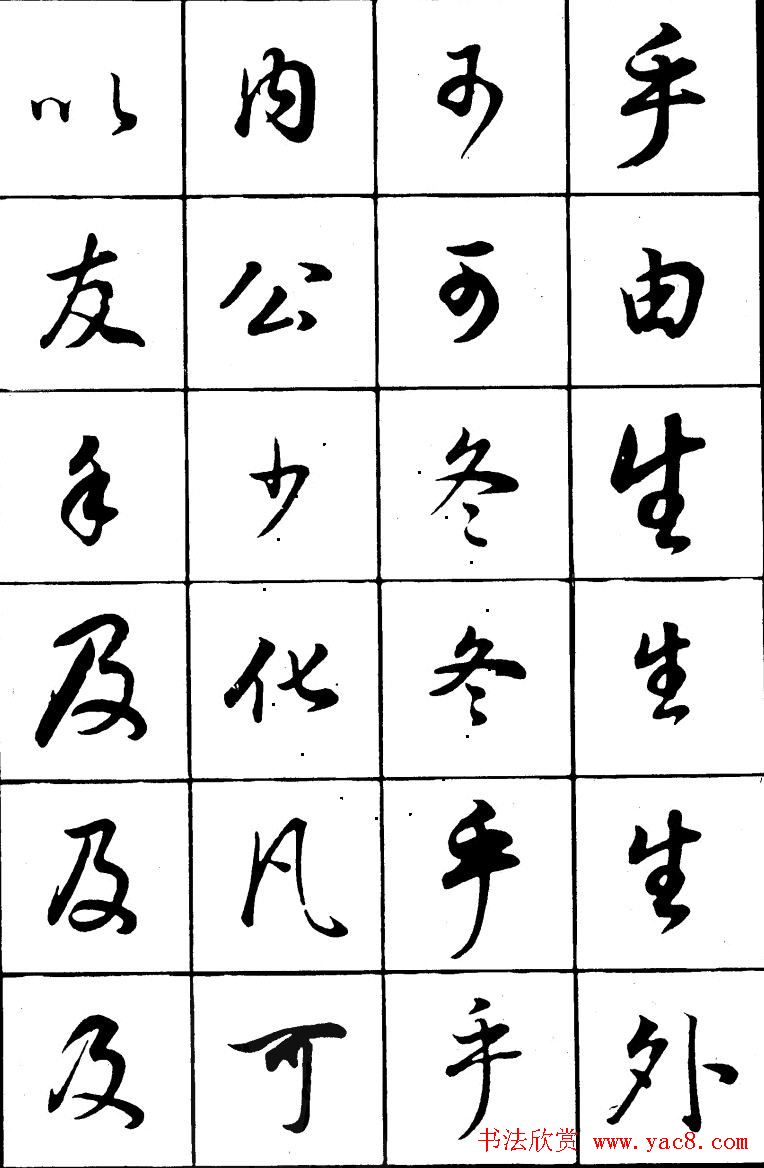 以友及及及
内公少化凡可
可可冬冬乎乎
乎由生生生外
书法欣赏 www.yac8.com